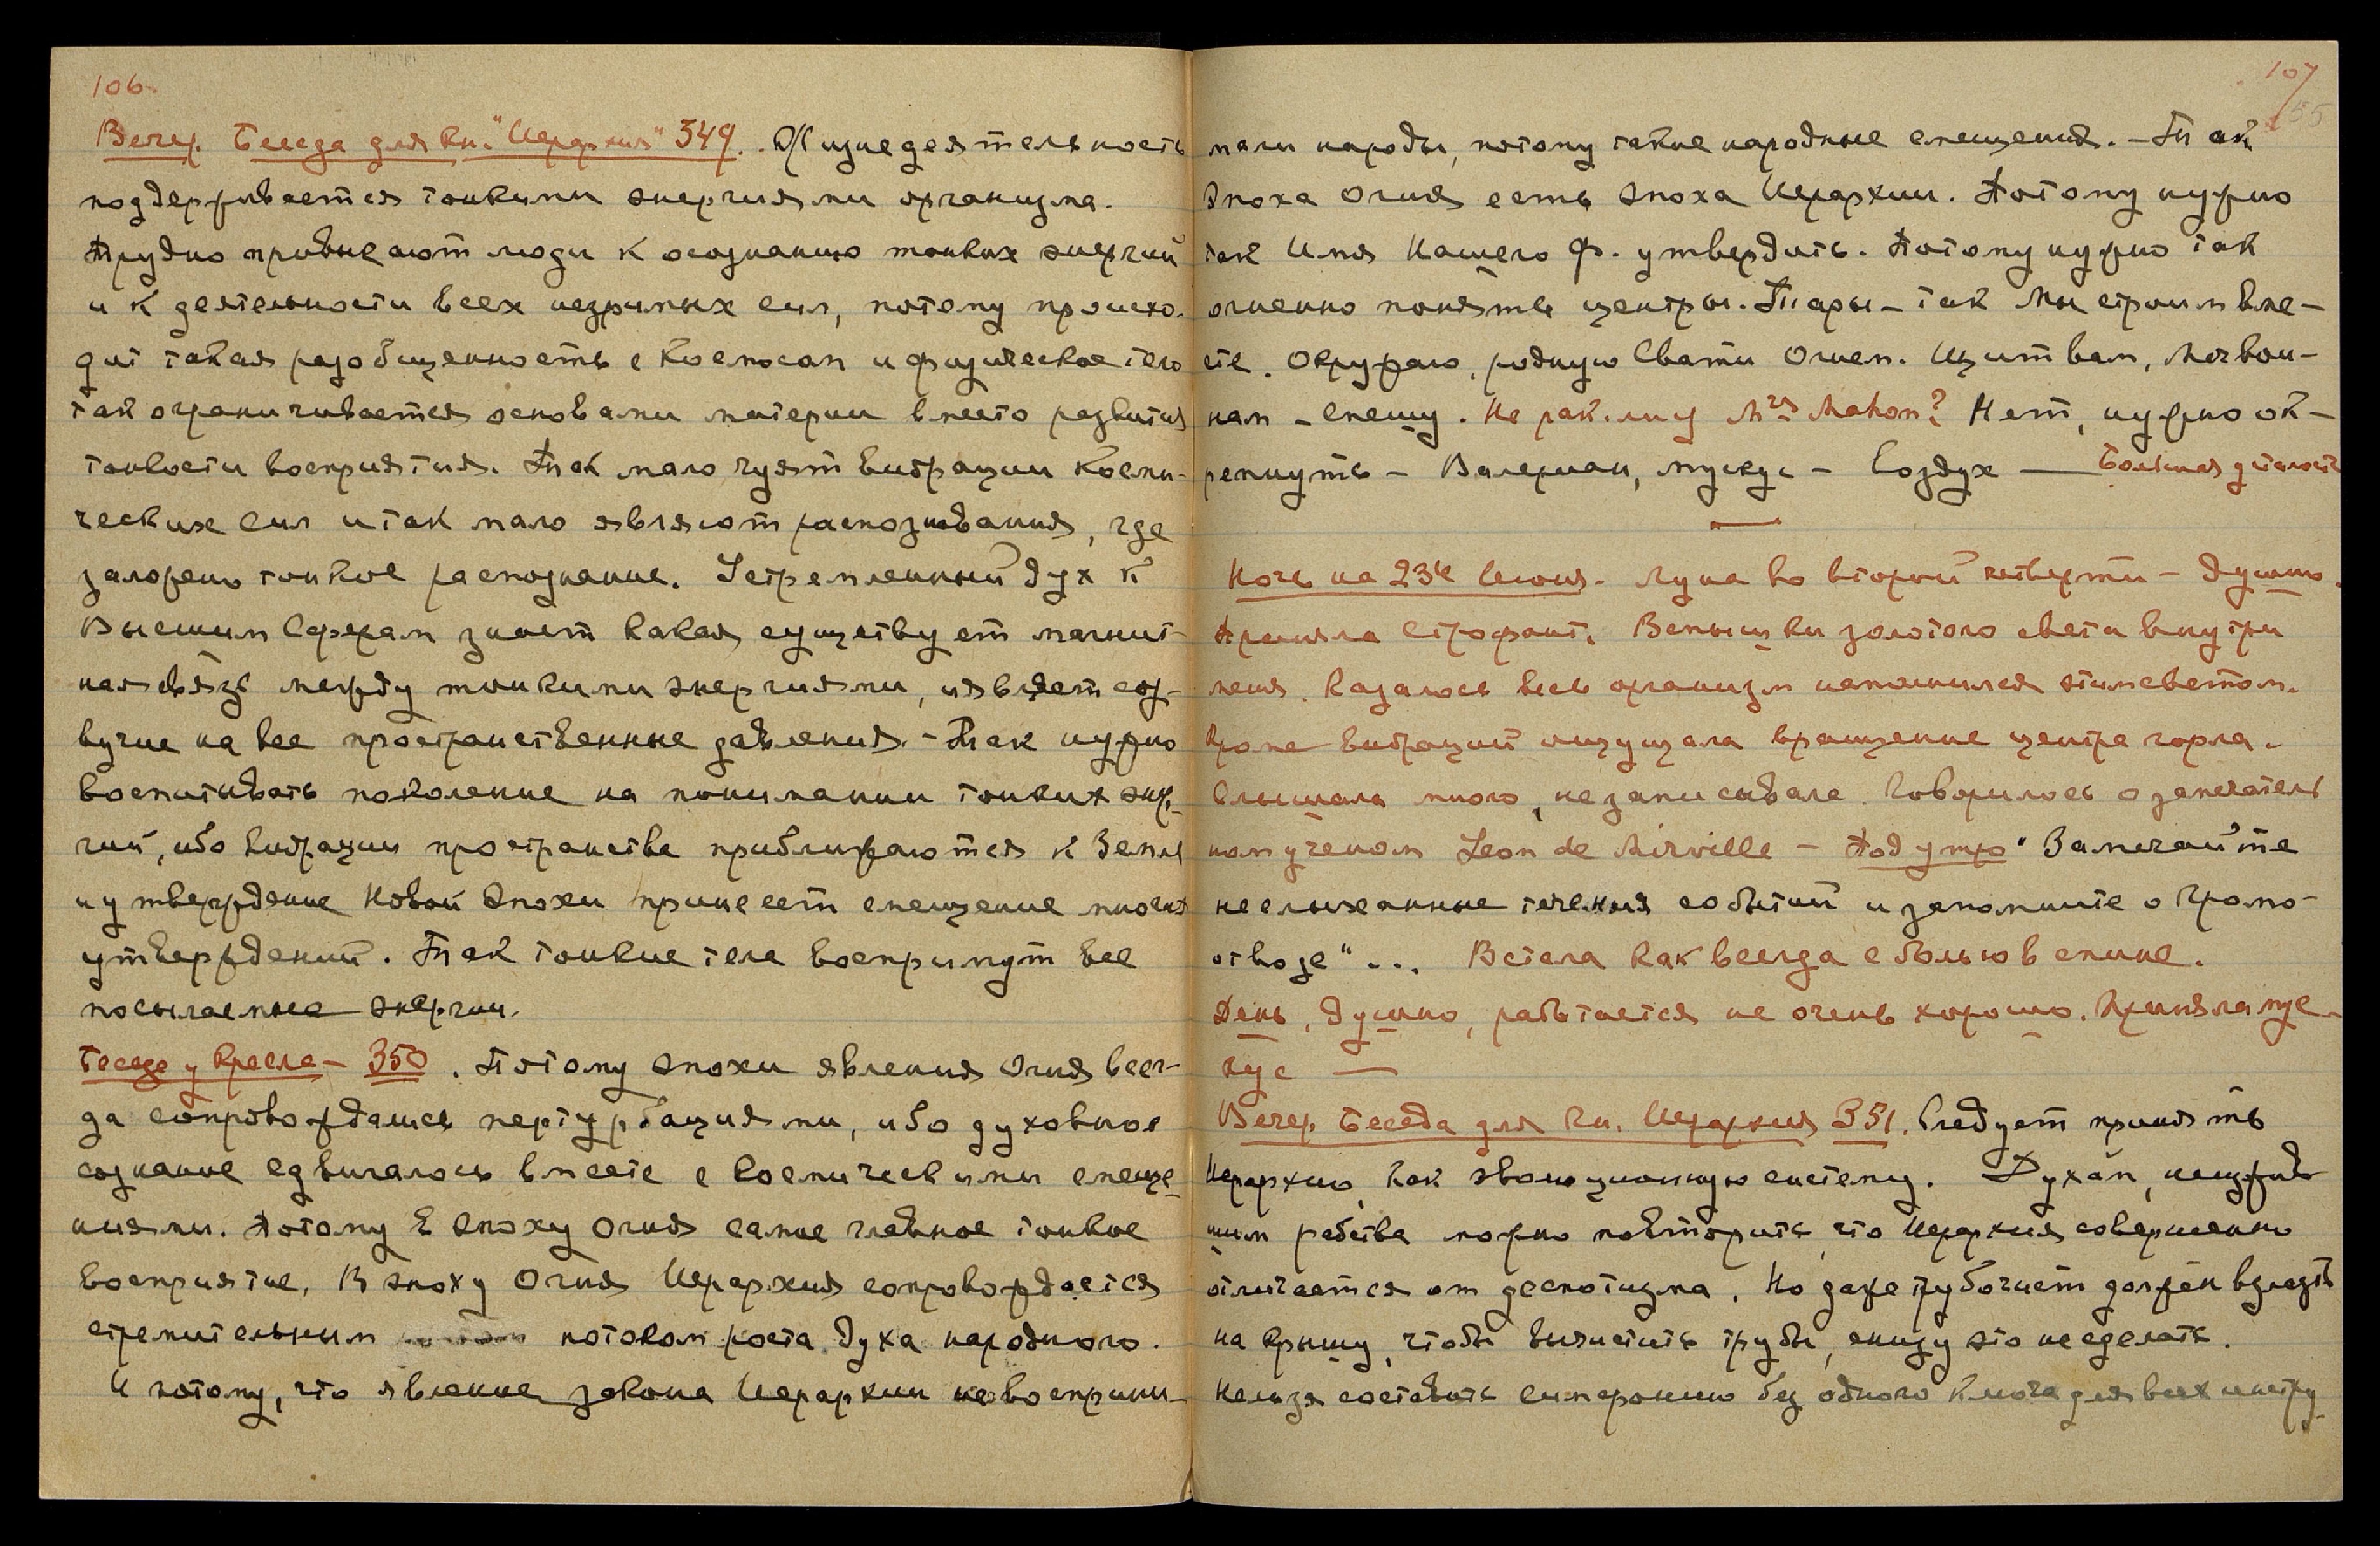 106.
Вечер. Беседа для Кн. "Иерархия" 349. Жизнедеятельность
поддерживается тонкими энергиями организма.
Трудно привыкают люди к осознанию тонких энергий
и к деятельности всех незримых сил, потому происхо-
дит такая разобщенность с Космосом и физическое тело
так ограничивается основами материи вместо развития
тонкости восприятия. Так мало чуят вибрации Косми-
ческих Сил и так мало являют распознавания, где
заложено тонкое распознание. Устремленный дух к
Высшим Сферам знает какая существует магнит-
ная связь между тонкими энергиями, и являет соз-
вучие на все пространственные давления. - Так нужно
воспитывать поколение на понимании тонких энер-
гий, ибо вибрации пространства приближаются к Земле
и утверждение Новой Эпохи принесет смещение многих
утверждений. Так тонкие тела воспримут все
посылаемые энергии.
Беседа у Кресла - 350. Потому эпохи явления Огня всег-
да сопровождались пертурбациями, ибо духовное
сознание сдвигалось вместе с космическими смеще-
ниями. Потому в эпоху Огня самое главное тонкое
восприятие. В эпоху Огня Иерархия сопровождается
стремительным потоком роста духа народного.
И потому, что явление закона Иерархии не восприни-
107
55
мали народы, потому такие народные смещения. - Так
Эпоха Огня есть эпоха Иерархии. Потому нужно
так Имя Нашего Ф. утвердить. Потому нужно так
огненно понять центры. Тары - так Мы строим вме-
сте. Окружаю, родную Свати Огнем. Щит вам, Мои вои-
нам - Спешу. Не рак ли у Mrs Mahon? Нет, нужно ок-
репнуть - Валериан, мускус - Воздух — Большая усталость
Ночь на 23е Июня. Луна во второй четверти - Душно.
Приняла Строфант. Вспышки золотого света внутри
меня. Казалось весь организм наполнился этим светом.
Кроме вибраций ощущала вращение центра горла.
Слышала много, не записывала Говорилось о замечатель
ном ученом Leon de Mirville - Под утро "Замечайте
неслыханные течения событий и запомните о Громо-
отводе"... Встала как всегда с болью в спине.
День, душно, работается не очень хорошо. Приняла мус-
кус —
Вечер. Беседа для Кн. Иерархия 351. Следует принять
Иерархию, как эволюционную систему. Духам, неизжив
шим рабства можно повторить, что Иерархия совершенно
отличается от деспотизма. Но даже трубочист должен влезть
на крышу, чтобы вычистить трубы, снизу это не сделать.
Нельзя составить симфонию без одного ключа для всех инстру